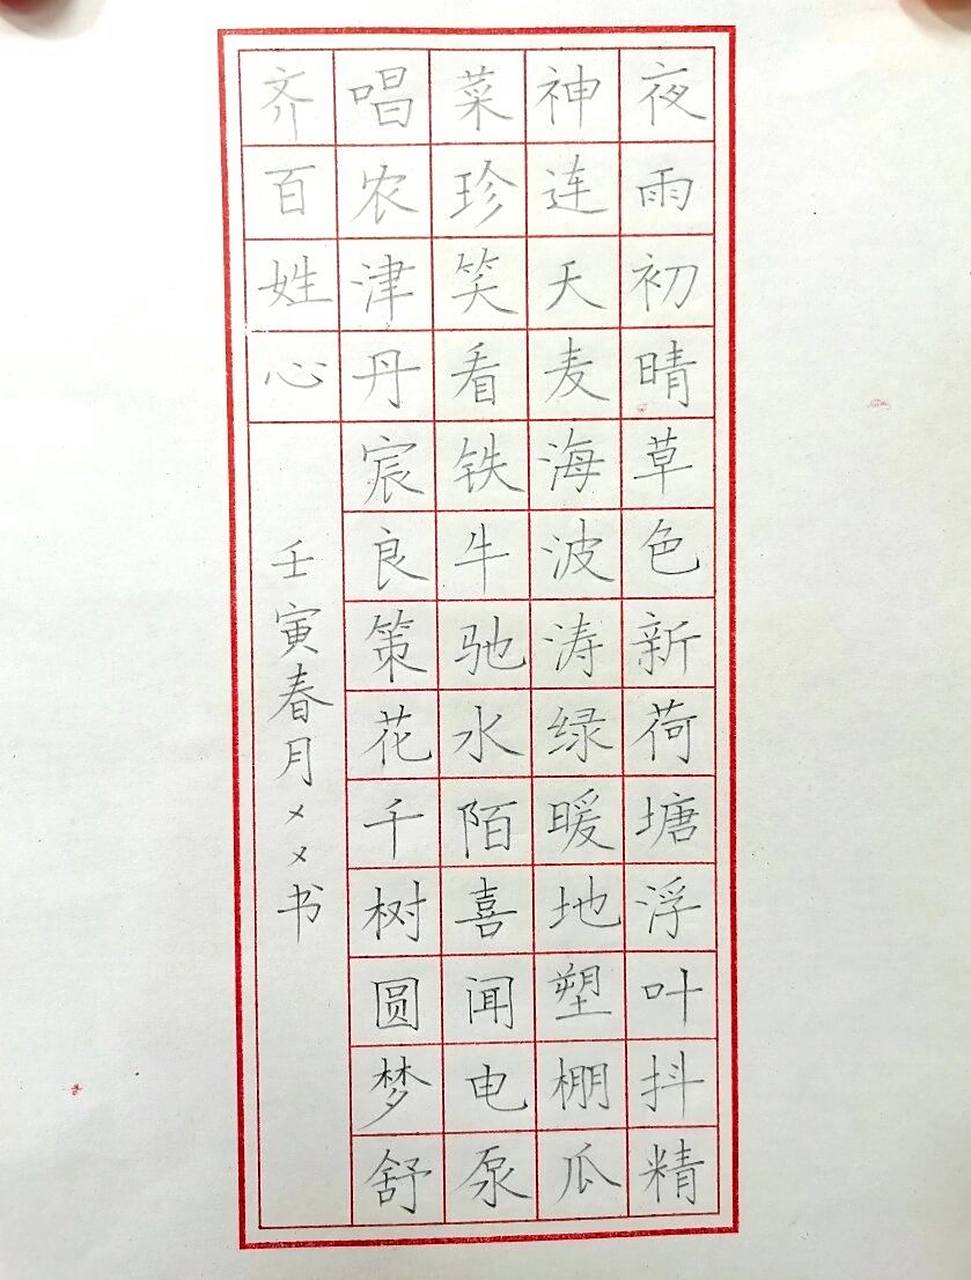 夜雨初晴草色新荷塘浮叶抖精
神连天麦海波涛绿暖地塑棚瓜
菜珍笑看铁牛驰水陌喜闻电泵
唱农津丹宸良策花千树圆梦舒
齐百姓心
壬寅春月㐅㐅书